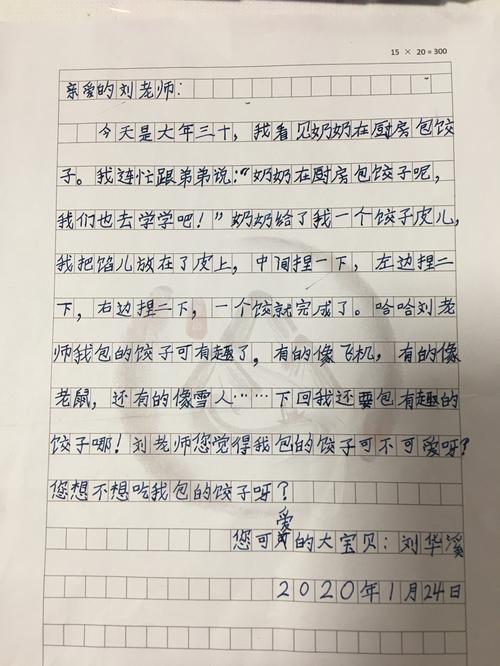 15 × 20 = 300
亲爱的刘老师：
今天是大年三十，我看见奶奶在厨房包饺
子。我连忙跟弟弟说：“奶奶在厨房包饺子呢，
我们也去学学吧！”奶奶给了我一个饺子皮儿，
我把馅儿放在了皮上，中间捏一下，左边捏二
下，右边捏二下，一个饺就完成了。哈哈刘老
师我包的饺子可有趣了，有的像飞机，有的像
老鼠，还有的像雪人……下回我还要包有趣的
饺子哪！刘老师您觉得我包的饺子可不可爱呀？
您想不想吃我包的饺子呀？
您可爱的大宝贝：刘华溪
2020年1月24日